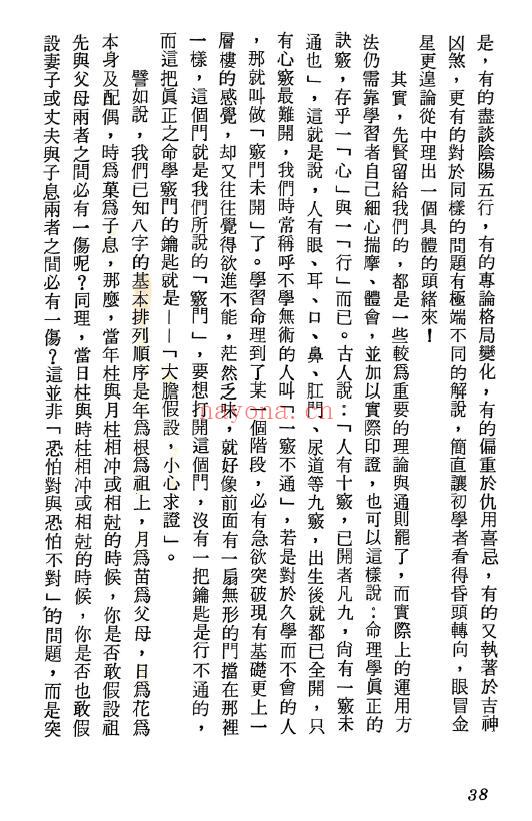 是，有的盡談陰陽五行，有的專論格局變化，有的偏重於仇用喜忌，有的又執著於吉神
凶煞，更有的對於同樣的問題有極端不同的解說，簡直讓初學者看得昏頭轉向，眼冒金
星更遑論從中理出一個具體的頭緒來！
其實，先賢留給我們的，都是一些較爲重要的理論與通則罷了，而實際上的運用方
法仍需靠學習者自己細心揣摩、體會，並加以實際印證，也可以這樣說：命理學眞正的
訣竅，存乎一「心」與一「行」而已。古人說：「人有十竅，已開者凡九，尙有一竅未
通也」，這就是說，人有眼、耳、口、鼻、肛門、尿道等九竅，出生後就都已全開，只
有心竅最難開，我們時常稱呼不學無術的人叫「一竅不通」，若是對於久學而不會的人
，那就叫做「竅門未開」了。學習命理到了某一個階段，必有急欲突破現有基礎更上一
層樓的感覺，却又往往覺得欲進不能，茫然乏味，就好像前面有一扇無形的門擋在那裡
一樣，這個門就是我們所說的「竅門」，要想打開這個門，沒有一把鑰匙是行不通的，
而這把眞正之命學竅門的鑰匙就是——「大膽假設，小心求證」。
譬如說，我們已知八字的基本排列順序是年爲根爲祖上，月爲苗爲父母，日爲花爲
本身及配偶，時爲菓爲子息，那麼，當年柱與月柱相冲或相尅的時候，你是否敢假設祖
先與父母兩者之間必有一傷呢？同理，當日柱與時柱相冲或相尅的時候，你是否也敢假
設妻子或丈夫與子息兩者之間必有一傷？這並非「恐怕對與恐怕不對」的問題，而是突
38
nayona.cn